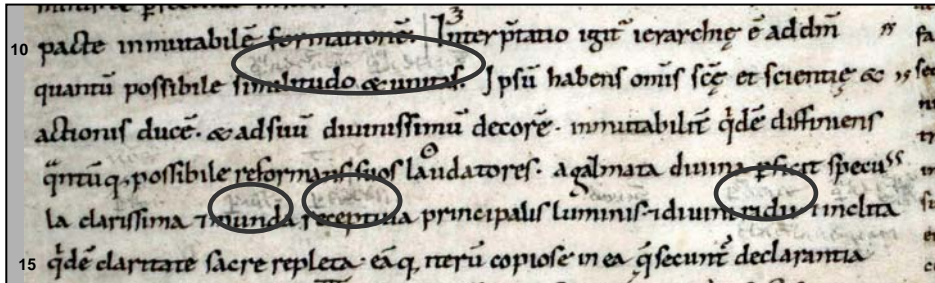 10 pacte inmutabilē formationē. Interp̄tatio igit̄ ierarchię ē ad dm̄
quantū possibile similitudo & unitas. Ipsū habens om̄is scę et scientię &
actionis ducē. & ad suū diuinissimū decorē. inmutabilit̄ qͥdē diffiniens
qͣntūq, possibile reformans suos laudatores. agalmata diuina ꝑficit specu
la clarissima ⁊ munda receptiua principalis luminis. ⁊ diuini radii ⁊ inclita
15 qͥdē claritate sacre repleta. eāq, iterū copiose in ea q̄ secunt̄ declarantia